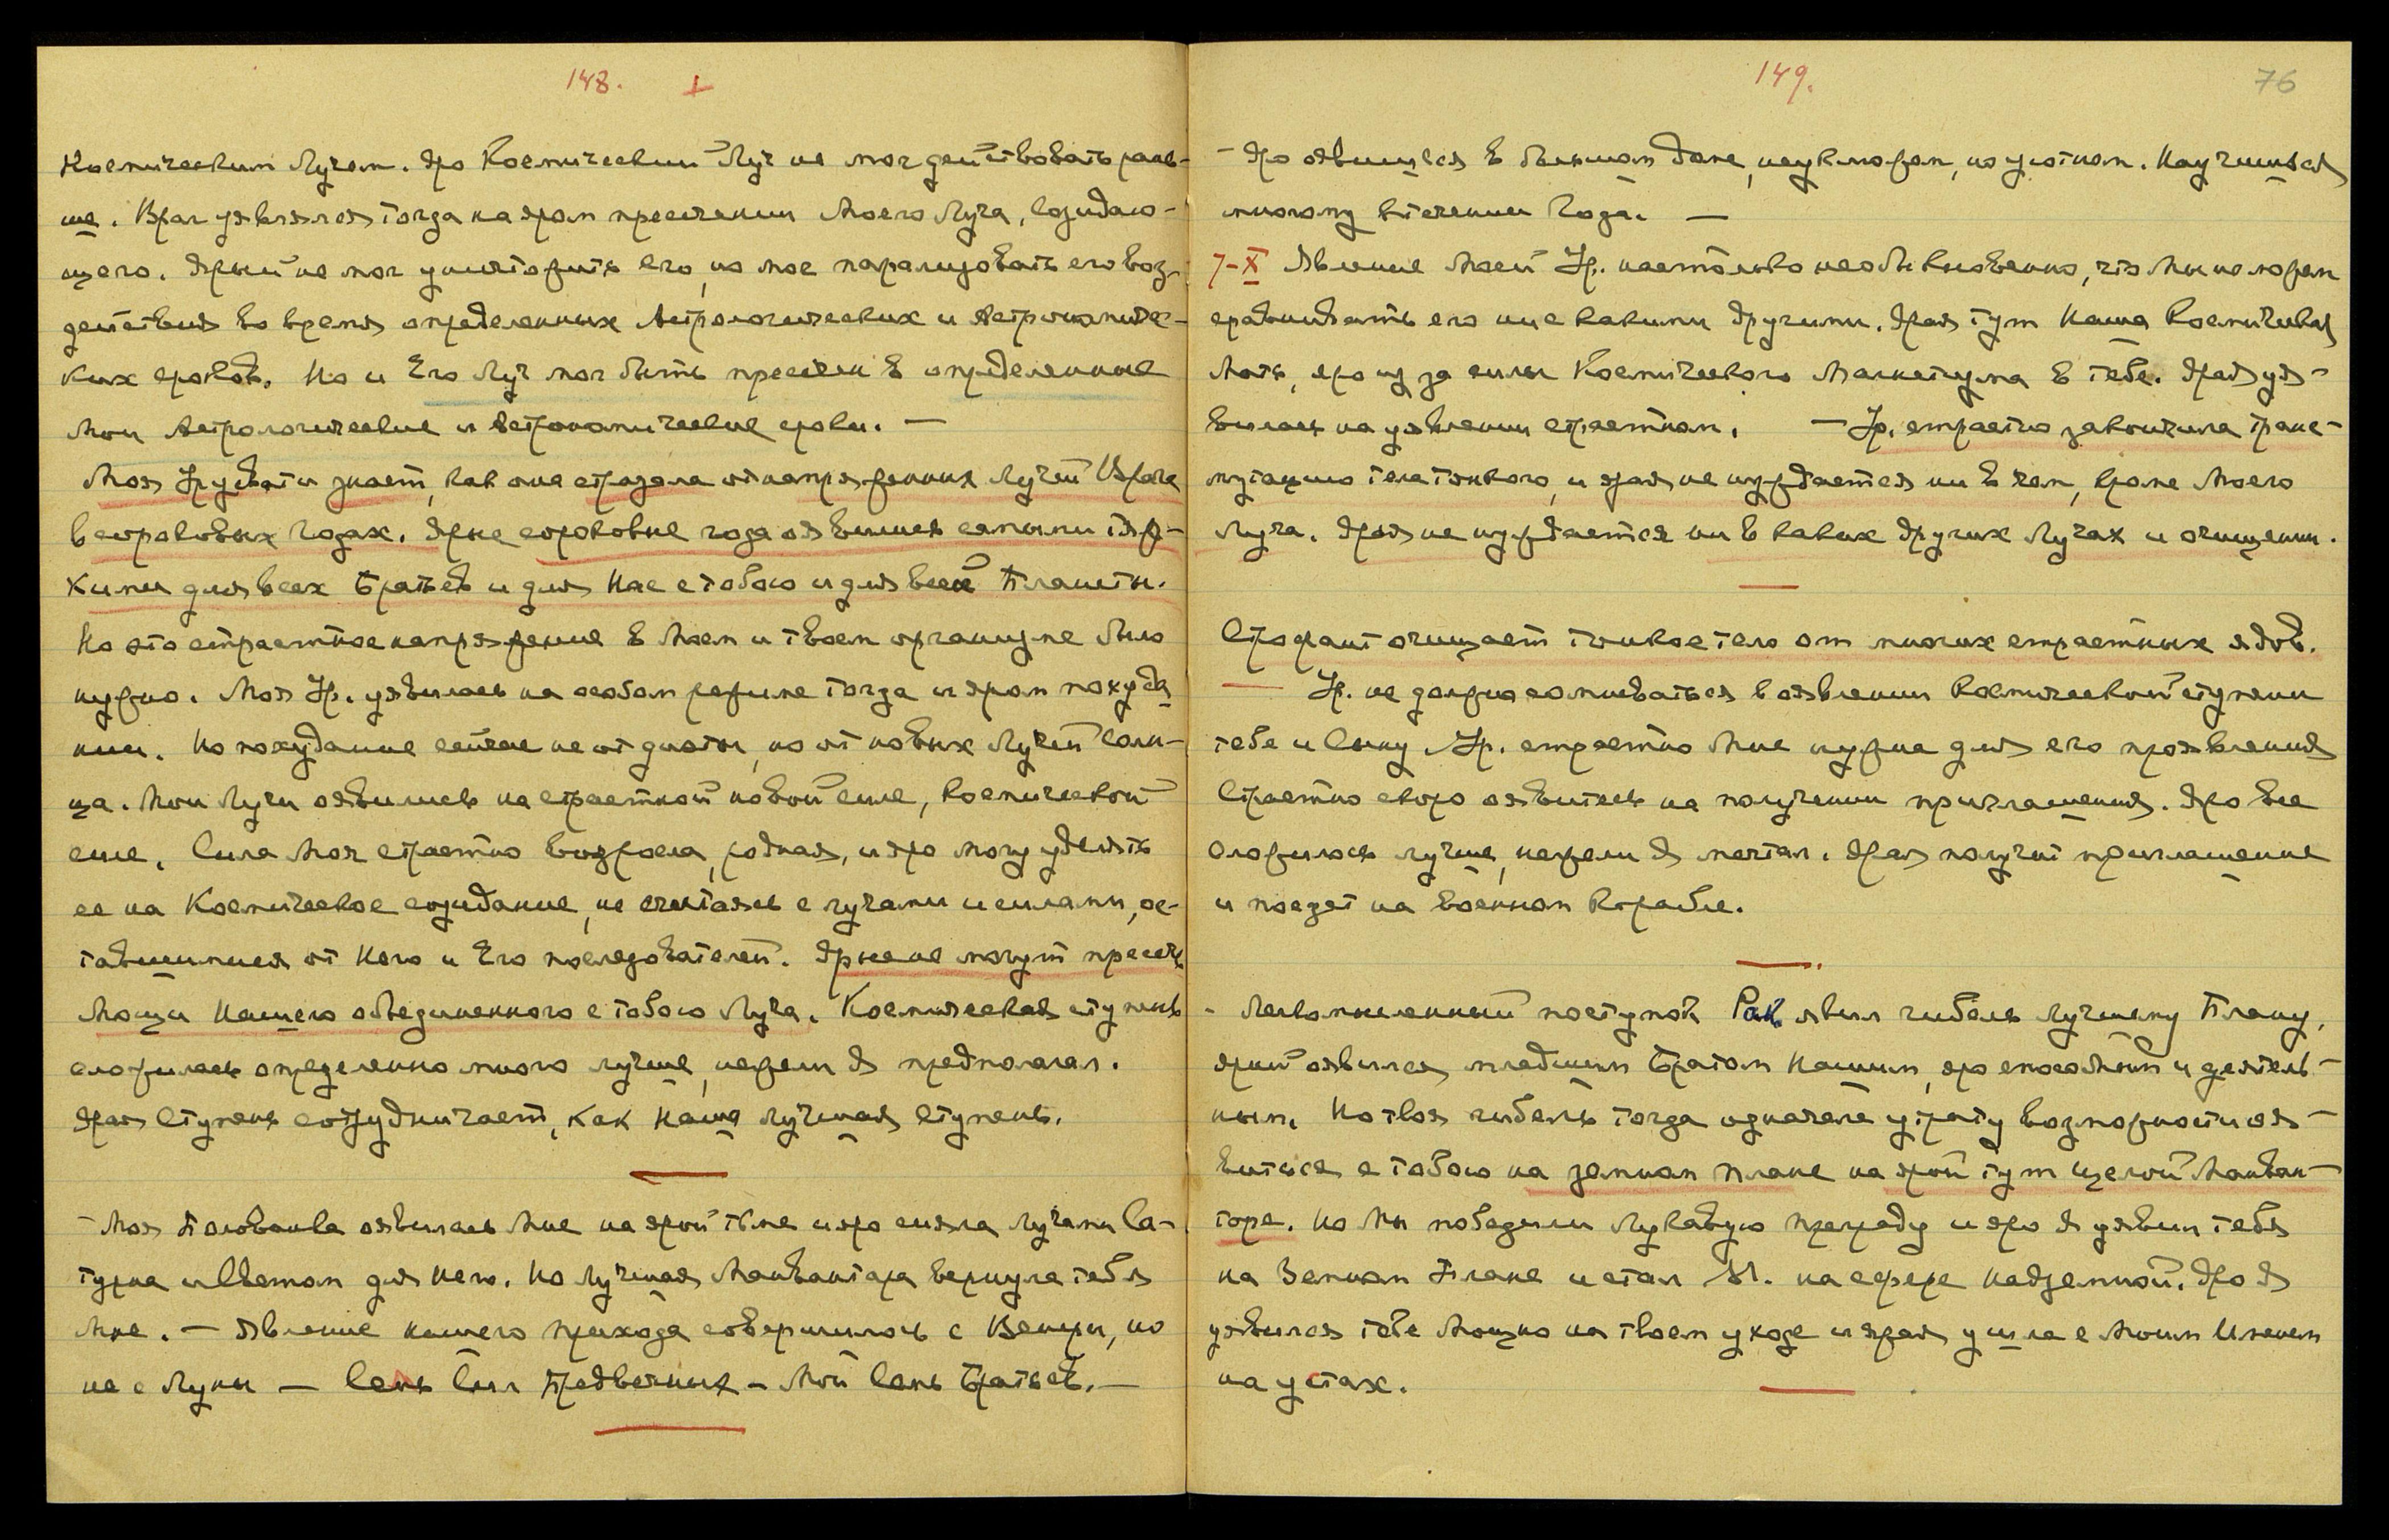 148. +
Космическим Лучом. Яро Космический Луч не мог действовать рань-
ше. Враг уявлялся тогда на яром пресечении Моего Луча, Созидаю-
щего. Ярый не мог уничтожить его, но мог парализовать его воз-
действия во время определенных Астрологических и Астрономичес-
ких сроков. Но и Его Луч мог быть пресечен в определенные
Мои Астрологические и Астрономические сроки. —
Моя Урусвати знает, как она страдала от напряжения Лучей Врага
в сороковых годах. Ярые сороковые года оявились самыми тяж-
кими для всех Братьев и для Нас с тобою и для всей Планеты.
Но это страстное напряжение в Моем и твоем организме было
нужно. Моя Ур. уявилась на особом режиме тогда и яром похуда
нии. Но похудание сейчас не от диеты, но от новых Лучей Солн-
ца. Мои Лучи оявились на страстной новой силе, Космической
силе. Сила Моя страстно возросла, родная, и яро могу уделять
ее на Космическое созидание, не считаясь с лучами и силами, ос-
тавшимися от Него и Его последователей. Ярые не могут пресечь
Мощи Нашего объединенного с тобою Луча. Космическая ступень
сложилась определенно много лучше, нежели Я предполагал.
Ярая Ступень сотрудничает, как Наша Лучшая Ступень.
- Моя Половинка оявилась Мне на ярой тьме и яро сияла лучами Са-
турна и Светом для Него. Но Лучшая Манвантара вернула тебя
Мне. — Явление нашего прихода совершилось с Венеры, но
не с Луны — Семь Сил Предвечных — Мои Семь Братьев. —
149. 76
- Яро оявишься в большом доме, неуклюжем, но уютном. Научишься
многому в течении Года. —
7-X Явление Моей Ур. настолько необыкновенно, что Мы не можем
сравнивать его ни с какими другими. Ярая тут Наша Космическая
Мать, яро из за силы Космического Магнетизма в тебе. Ярая уя-
вилась на уявлении страстном. — Ур. страстно закончила транс-
мутацию тела тонкого, и ярая не нуждается ни в чем, кроме Моего
Луча. Ярая не нуждается ни в каких других Лучах и очищении.
Строфант очищает тонкое тело от многих страстных ядов.
— Ур. не должно сомневаться в оявлении Космической ступени
тебе и Сыну Ур. страстно Мне нужна для его проявления
Страстно скоро оявитесь на получении приглашения. Яро все
сложилось лучше, нежели Я мечтал. Ярая получит приглашение
и поедет на военном корабле.
- Легкомысленный поступок Рак явил гибель Лучшему Плану,
ярый оявился младшим Братом Нашим, яро способным и деятель-
ным. Но твоя гибель тогда означала утрату возможности оя-
виться с тобою на земном плане на ярой тут целой Манван-
таре. Но Мы победили Лукавую преграду и яро Я уявил тебя
на Земном Плане и стал Вл. на сфере надземной. Яро Я
уявился тебе Мощно на твоем уходе и ярая ушла с Моим Именем
на устах.